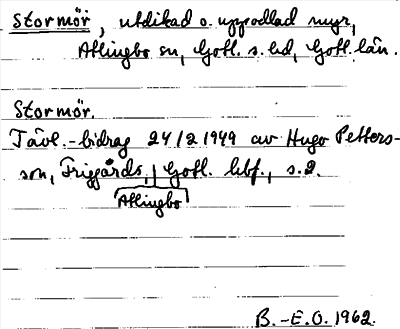 Stormör, utdikad o. uppodlad myr,
Atlingbo sn, Gotl. s. hd, Gotl. län.
Stormör.
Tävl.-bidrag 24/2 1949 av Hugo Petters-
son, Friggårds, Gotl. hbf., s. 2.
Atlingbo
B.-E.O. 1962.